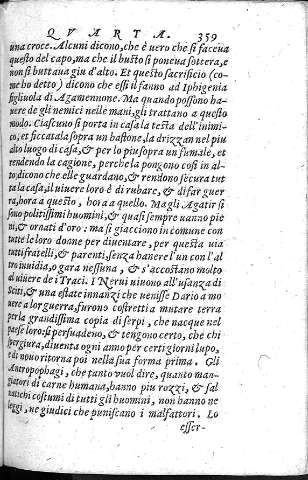 QVARTA. 359
una croce. Alcuni dicono, che è uero che si faceua
questo del capo, ma che il busto si poneua sottera, e
non si buttaua giu d'alto. Et questo sacrificio (co
me ho detto) dicono che essi il fanno ad Iphigenia
figliuola di Agamennone. Ma quando possono ha-
uere de gli nemici nelle mani, gli trattano a questo
modo. Ciascuno si porta in casa la testa dell'inimi-
co, et ficcatala sopra un bastone, la drizzan nel piu
alto luogo di casa, & per lo piu sopra un fumale, et
rendendo la cagione, perche la pongono cosi in al-
to; dicono che elle guardano, & rendono secura tut
ta la casa, il uiuere loro è di rubare, & di far guer
ra, hora a questo, hor a a quello. Ma gli Agatirsi
sono politissimi huomini, & quasi sempre uanno pie
ni, & ornati d'oro: ma si giacciono in comune con
tutte le loro donne per diuentare, per questa uia
tutti fratelli, & parenti, senza hauere l'un con l'al
tro inuidia, o gara nessuna, & s'accostano molto
al uiuere de i Traci. I Nerui uiuono all'usanza di
Sciti, & una estate innanzi che uenisse Dario a mo
uere a lor guerra, furono costretti a mutare terra
per la grandissima copia di serpi, che nacque nel
paese loro: si persuadeno, & tengono certo, che chi
spergiura, diuenta ogni anno per certi giorni lupo,
e di nouo ritorna poi nella sua forma prima. Gli
Antropophagi, che tanto vuol dire, quanto man-
giatori di carne humana, hanno piu rozzi, & sal
uatichi costumi di tutti gli huomini, non hanno ne
leggi, ne giudici che puniscano i malfattori. Lo
esser-